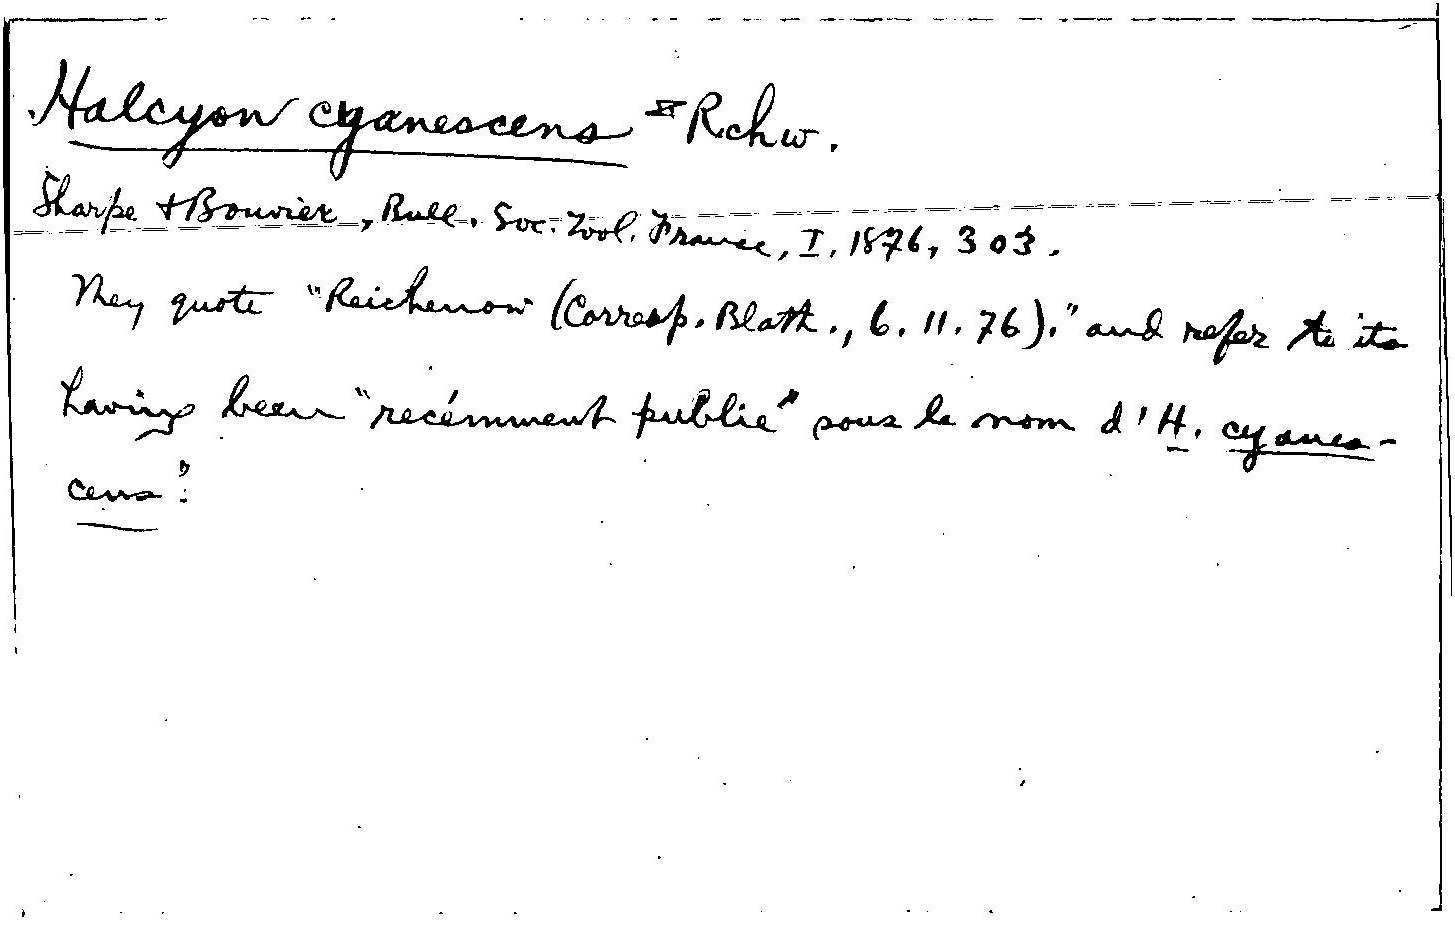 Halcyon cyanescens Rchw.
Sharpe + Bouvier, Bull. Soc. Zool. France, I, 1876, 303.
They quote "Reichenow (Corresp. Blatt., 6. 11. 76)." and refer to its
having been "recémment publié" sous le nom d'H. cyanes-
cens".